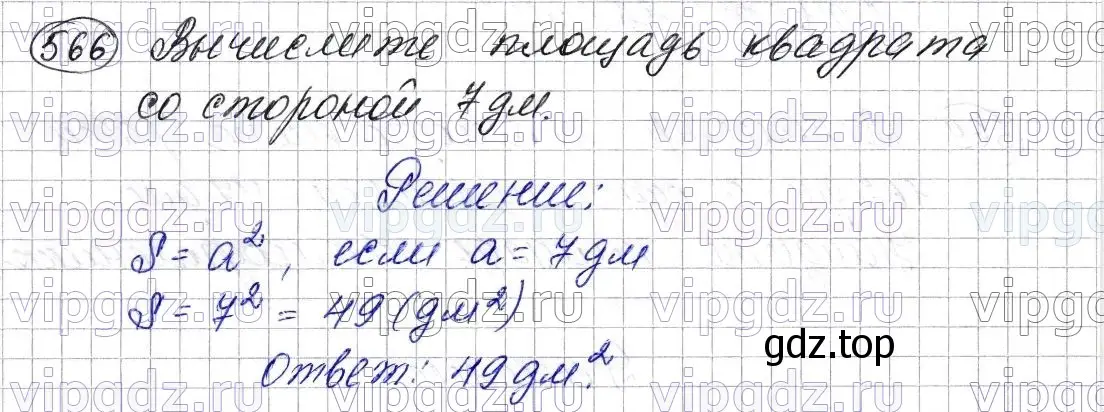 566 Вычислите площадь квадрата
со стороной 7 дм.
Решение:
S = a², если a = 7 дм
S = 7² = 49 (дм²)
Ответ: 49 дм².
gdz.top
vipgdz.ru